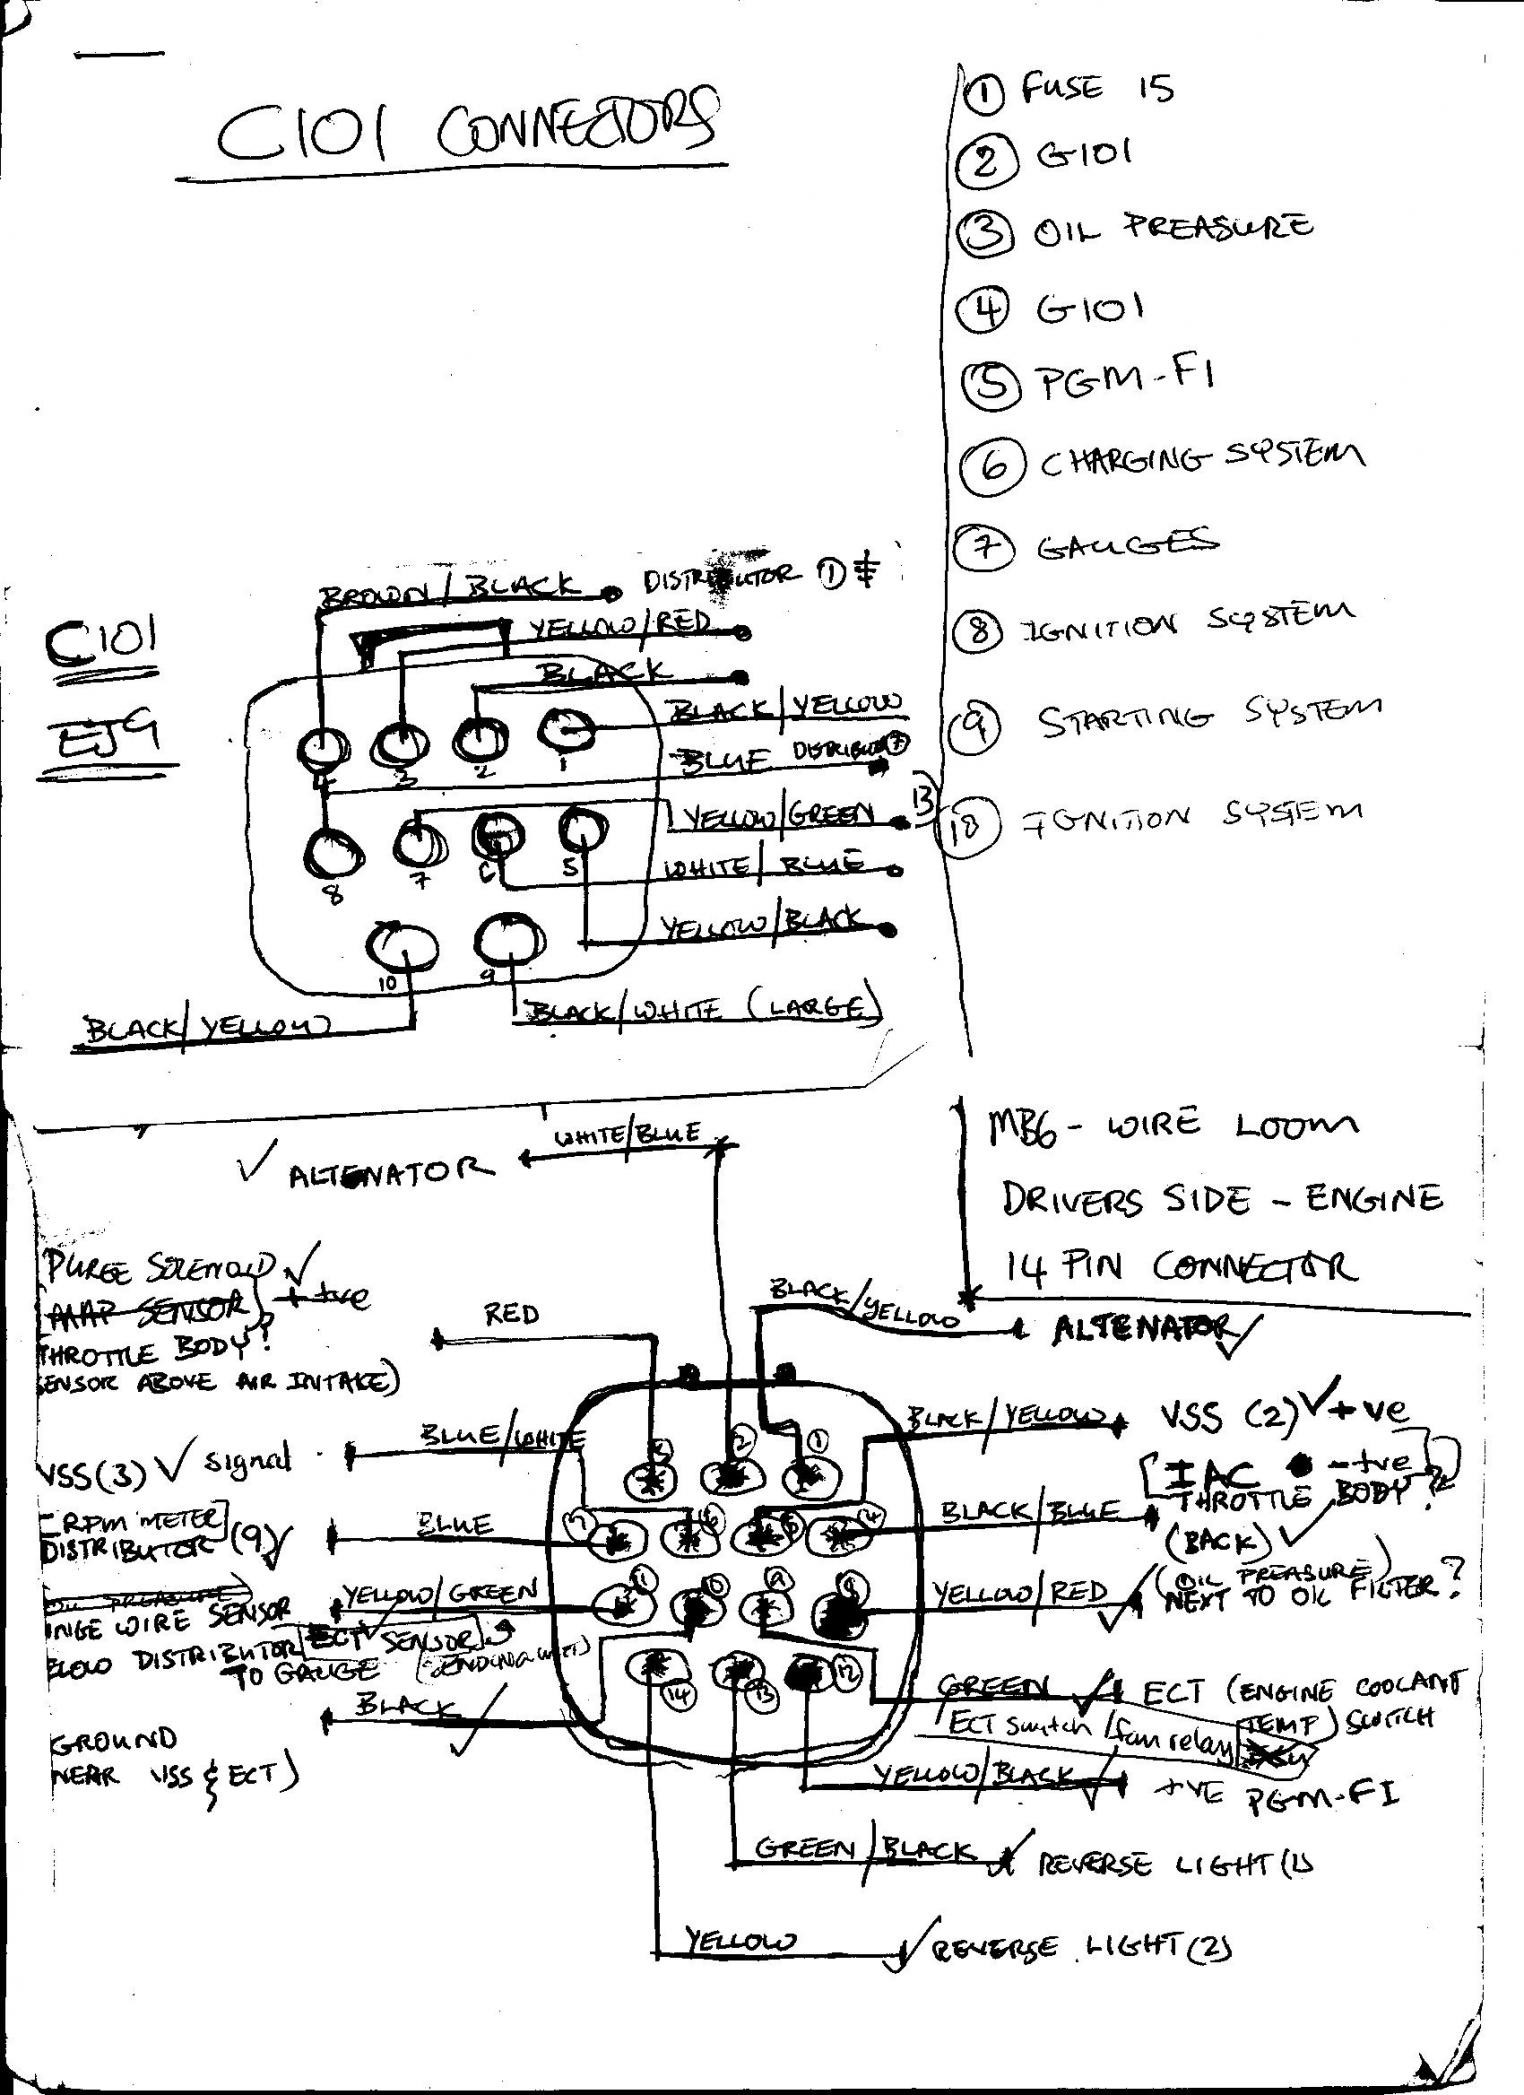 C101 CONNECTORS
① FUSE 15
② G101
③ OIL PREASURE
④ G101
⑤ PGM-FI
⑥ CHARGING SYSTEM
⑦ GAUGES
⑧ IGNITION SYSTEM
⑨ STARTING SYSTEM
⑩ IGNITION SYSTEM
C101
EJ9
BROWN/BLACK DISTRIBUTOR ①
YELLOW/RED
BLACK
BLACK/YELLOW
BLUE DISTRIBUT ⑦
YELLOW/GREEN 13
WHITE/BLUE
YELLOW/BLACK
4 3 2 1
8 7 6 5
10 9
BLACK/YELLOW
BLACK/WHITE (LARGE)
MB6 - WIRE LOOM
DRIVERS SIDE - ENGINE
14 PIN CONNECTOR
WHITE/BLUE
✓ ALTENATOR
PURGE SOLENOID ✓
MAP SENSOR + +ve
THROTTLE BODY?
SENSOR ABOVE AIR INTAKE)
RED
BLACK/YELLOW
ALTENATOR ✓
BLUE/WHITE
VSS(3) ✓ signal
BLACK/YELLOW
VSS (2) ✓ +ve
[RPM METER]
DISTRIBUTOR (9) ✓
BLUE
BLACK/BLUE
[IAC -+ve
THROTTLE BODY?
(BACK) ✓
YELLOW/GREEN
OIL PREASURE)
WIRE SENSOR
BLOW DISTRIBUTOR [ECT SENSOR]
TO GAUGE
YELLOW/RED ✓
(OIL PREASURE)
NEXT TO OIL FILTER?
③ ② ①
⑦ ⑥ ⑤ ④
⑪ ⑩ ⑨ ⑧
⑭ ⑬ ⑫
BLACK ✓
GROUND
NEAR VSS & ECT)
GREEN ✓ ECT (ENGINE COOLANT
TEMP) SWITCH
ECT switch/fan relay
YELLOW/BLACK ✓ +VE PGM-FI
GREEN/BLACK ✓ REVERSE LIGHT (1)
YELLOW ✓ REVERSE LIGHT (2)